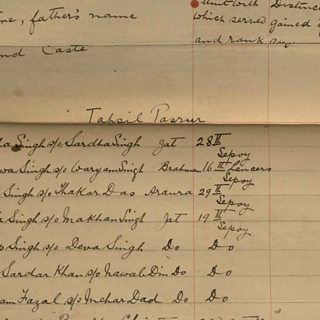 me, father's name
and Caste
Unit with Distinc
which served gained i
and rank
Tahsil Pasrur
Singh s/o Sardha Singh Jat 28th
Sepoy
wa Singh s/o Waryam Singh Brahman 16th Lancers
Sepoy
Singh s/o Thakar Das Araura 29th
Sepoy
Singh s/o Makhan Singh Jat 19th
Sepoy
Singh s/o Deva Singh Do Do
Sardar Khan s/o Nawab Din Do Do
am Fazal s/o Mehar Dad Do Do